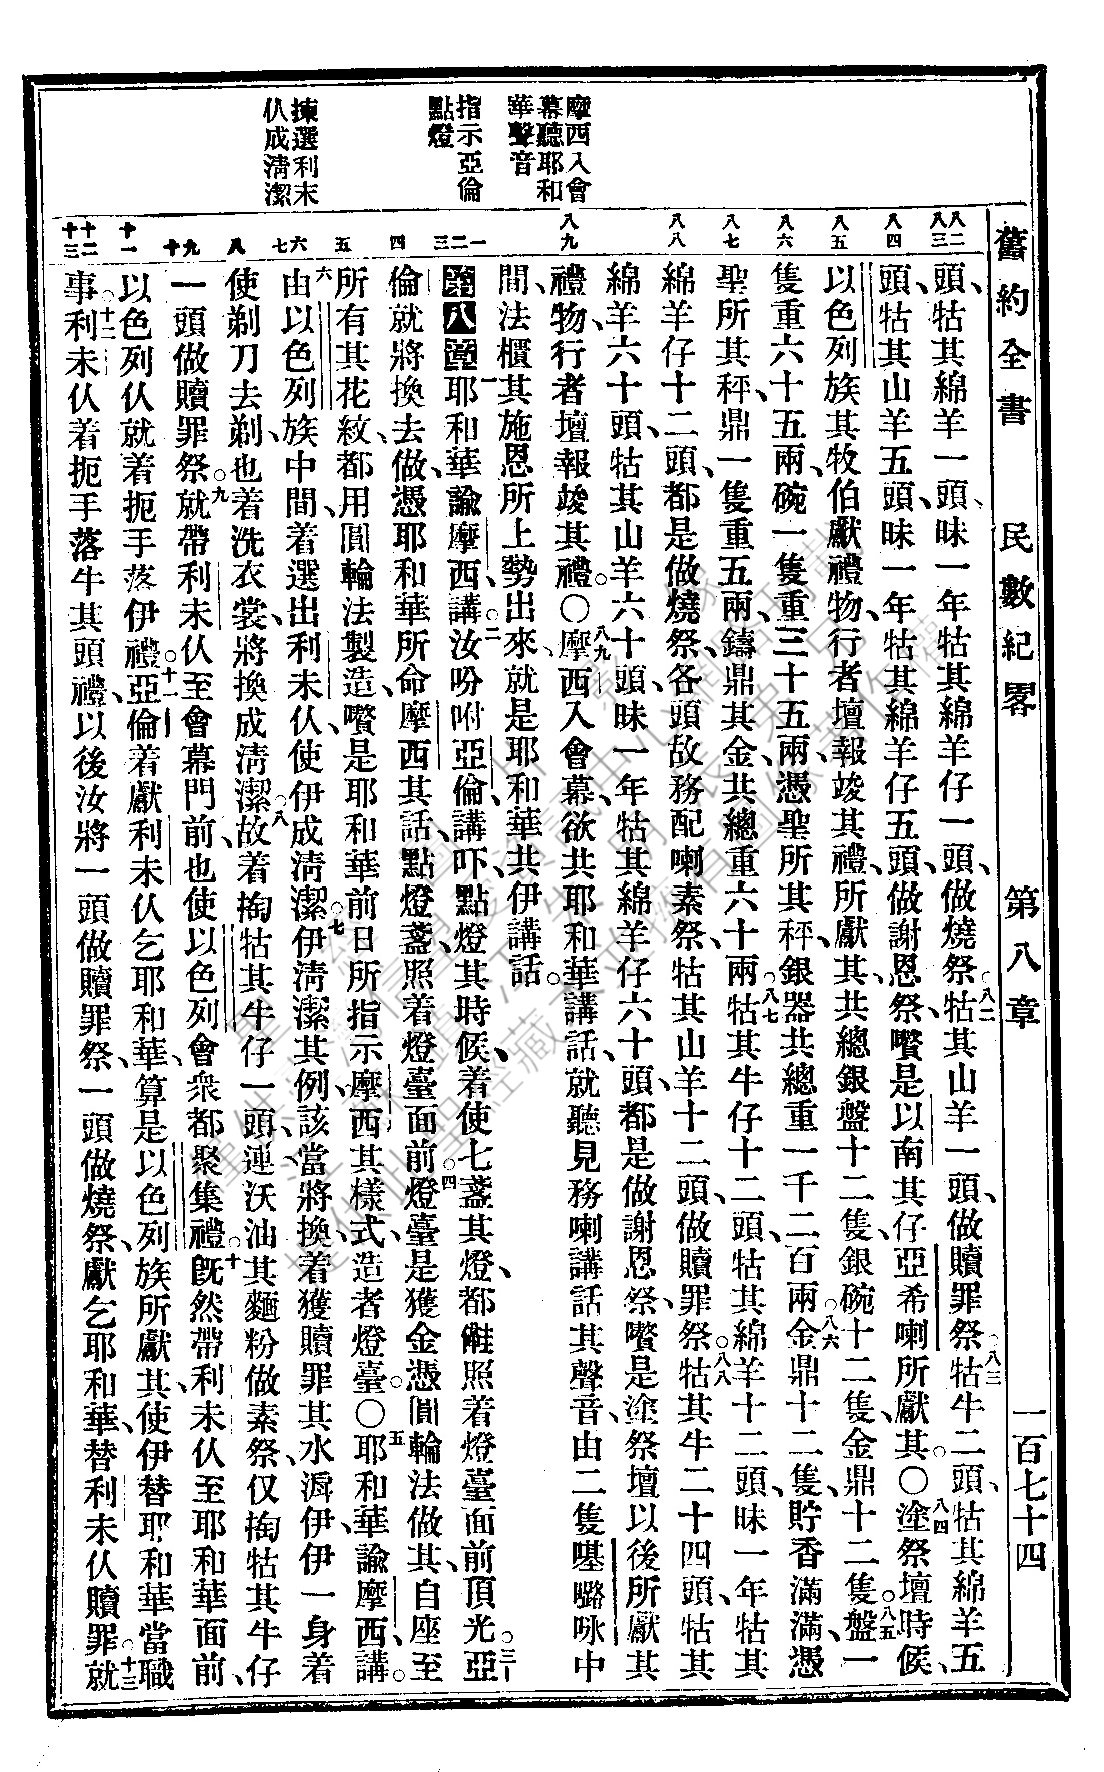 舊約全書 民數紀畧 第八章 一百七十四
摩西入會
幕聽耶和
華聲音
指示亞倫
點燈
揀選利未
仈成淸潔
八二
八三
八四
八五
八六
八七
八八
八九
一
二
三
四
五
六
七
八
九
十
十一
十二
十三
頭、牯其綿羊一頭、昧一年牯其綿羊仔一頭、做燒祭。八二牯其山羊一頭、做贖罪祭。八三牯牛二頭、牯其綿羊五
頭、牯其山羊五頭、昧一年牯其綿羊仔五頭、做謝恩祭、嚽是以南其仔亞希喇所獻其。〇八四塗祭壇時候、
以色列族其牧伯獻禮物、行者壇報竣其禮、所獻其共總銀盤十二隻、銀碗十二隻、金鼎十二隻、八五盤一
隻重六十五兩、碗一隻重三十五兩、憑聖所其秤、銀器共總重一千二百兩。八六金鼎十二隻、貯香滿滿、憑
聖所其秤、鼎一隻重五兩、鑄鼎其金、共總重六十兩。八七牯其牛仔十二頭、牯其綿羊十二頭、昧一年牯其
綿羊仔十二頭、都是做燒祭、各頭故務配喇素祭、牯其山羊十二頭、做贖罪祭。八八牯其牛二十四頭、牯其
綿羊六十頭、牯其山羊六十頭、昧一年牯其綿羊仔六十頭、都是做謝恩祭、嚽是塗祭壇以後、所獻其
禮物、行者壇報竣其禮。〇八九摩西入會幕、欲共耶和華講話、就聽見務喇講話其聲音、由二隻𠼻𡀔咏中
間、法櫃其施恩所上勢出來、就是耶和華共伊講話。
第八章 一耶和華諭摩西講、二汝吩咐亞倫講、吓、點燈其時候、着使七盞其燈、都㒇照着燈臺面前頂光。三亞
倫就將換去做、憑耶和華所命摩西其話、點燈盞照着燈臺面前。四燈臺是獲金憑圓輪法做其、自座至
所有其花紋、都用圓輪法製造、嚽是耶和華前日所指示摩西其樣式、造者燈臺。〇五耶和華諭摩西講、
六由以色列族中間、着選出利未仈、使伊成淸潔。七伊淸潔其例、該當將換、着獲贖罪其水、㴙伊、伊一身着
使剃刀去剃、也着洗衣裳、將換成淸潔。八故着掏牯其牛仔一頭、連沃油其麵粉做素祭、仅掏牯其牛仔
一頭、做贖罪祭。九就帶利未仈至會幕門前、也使以色列會衆都聚集禮。十旣然帶利未仈至耶和華面前、
以色列仈就着扼手落伊禮。十一亞倫着獻利未仈乞耶和華、算是以色列族所獻其、使伊替耶和華當職
事。十二利未仈着扼手落牛其頭禮、以後汝將一頭做贖罪祭、一頭做燒祭、獻乞耶和華、替利未仈贖罪。十三就